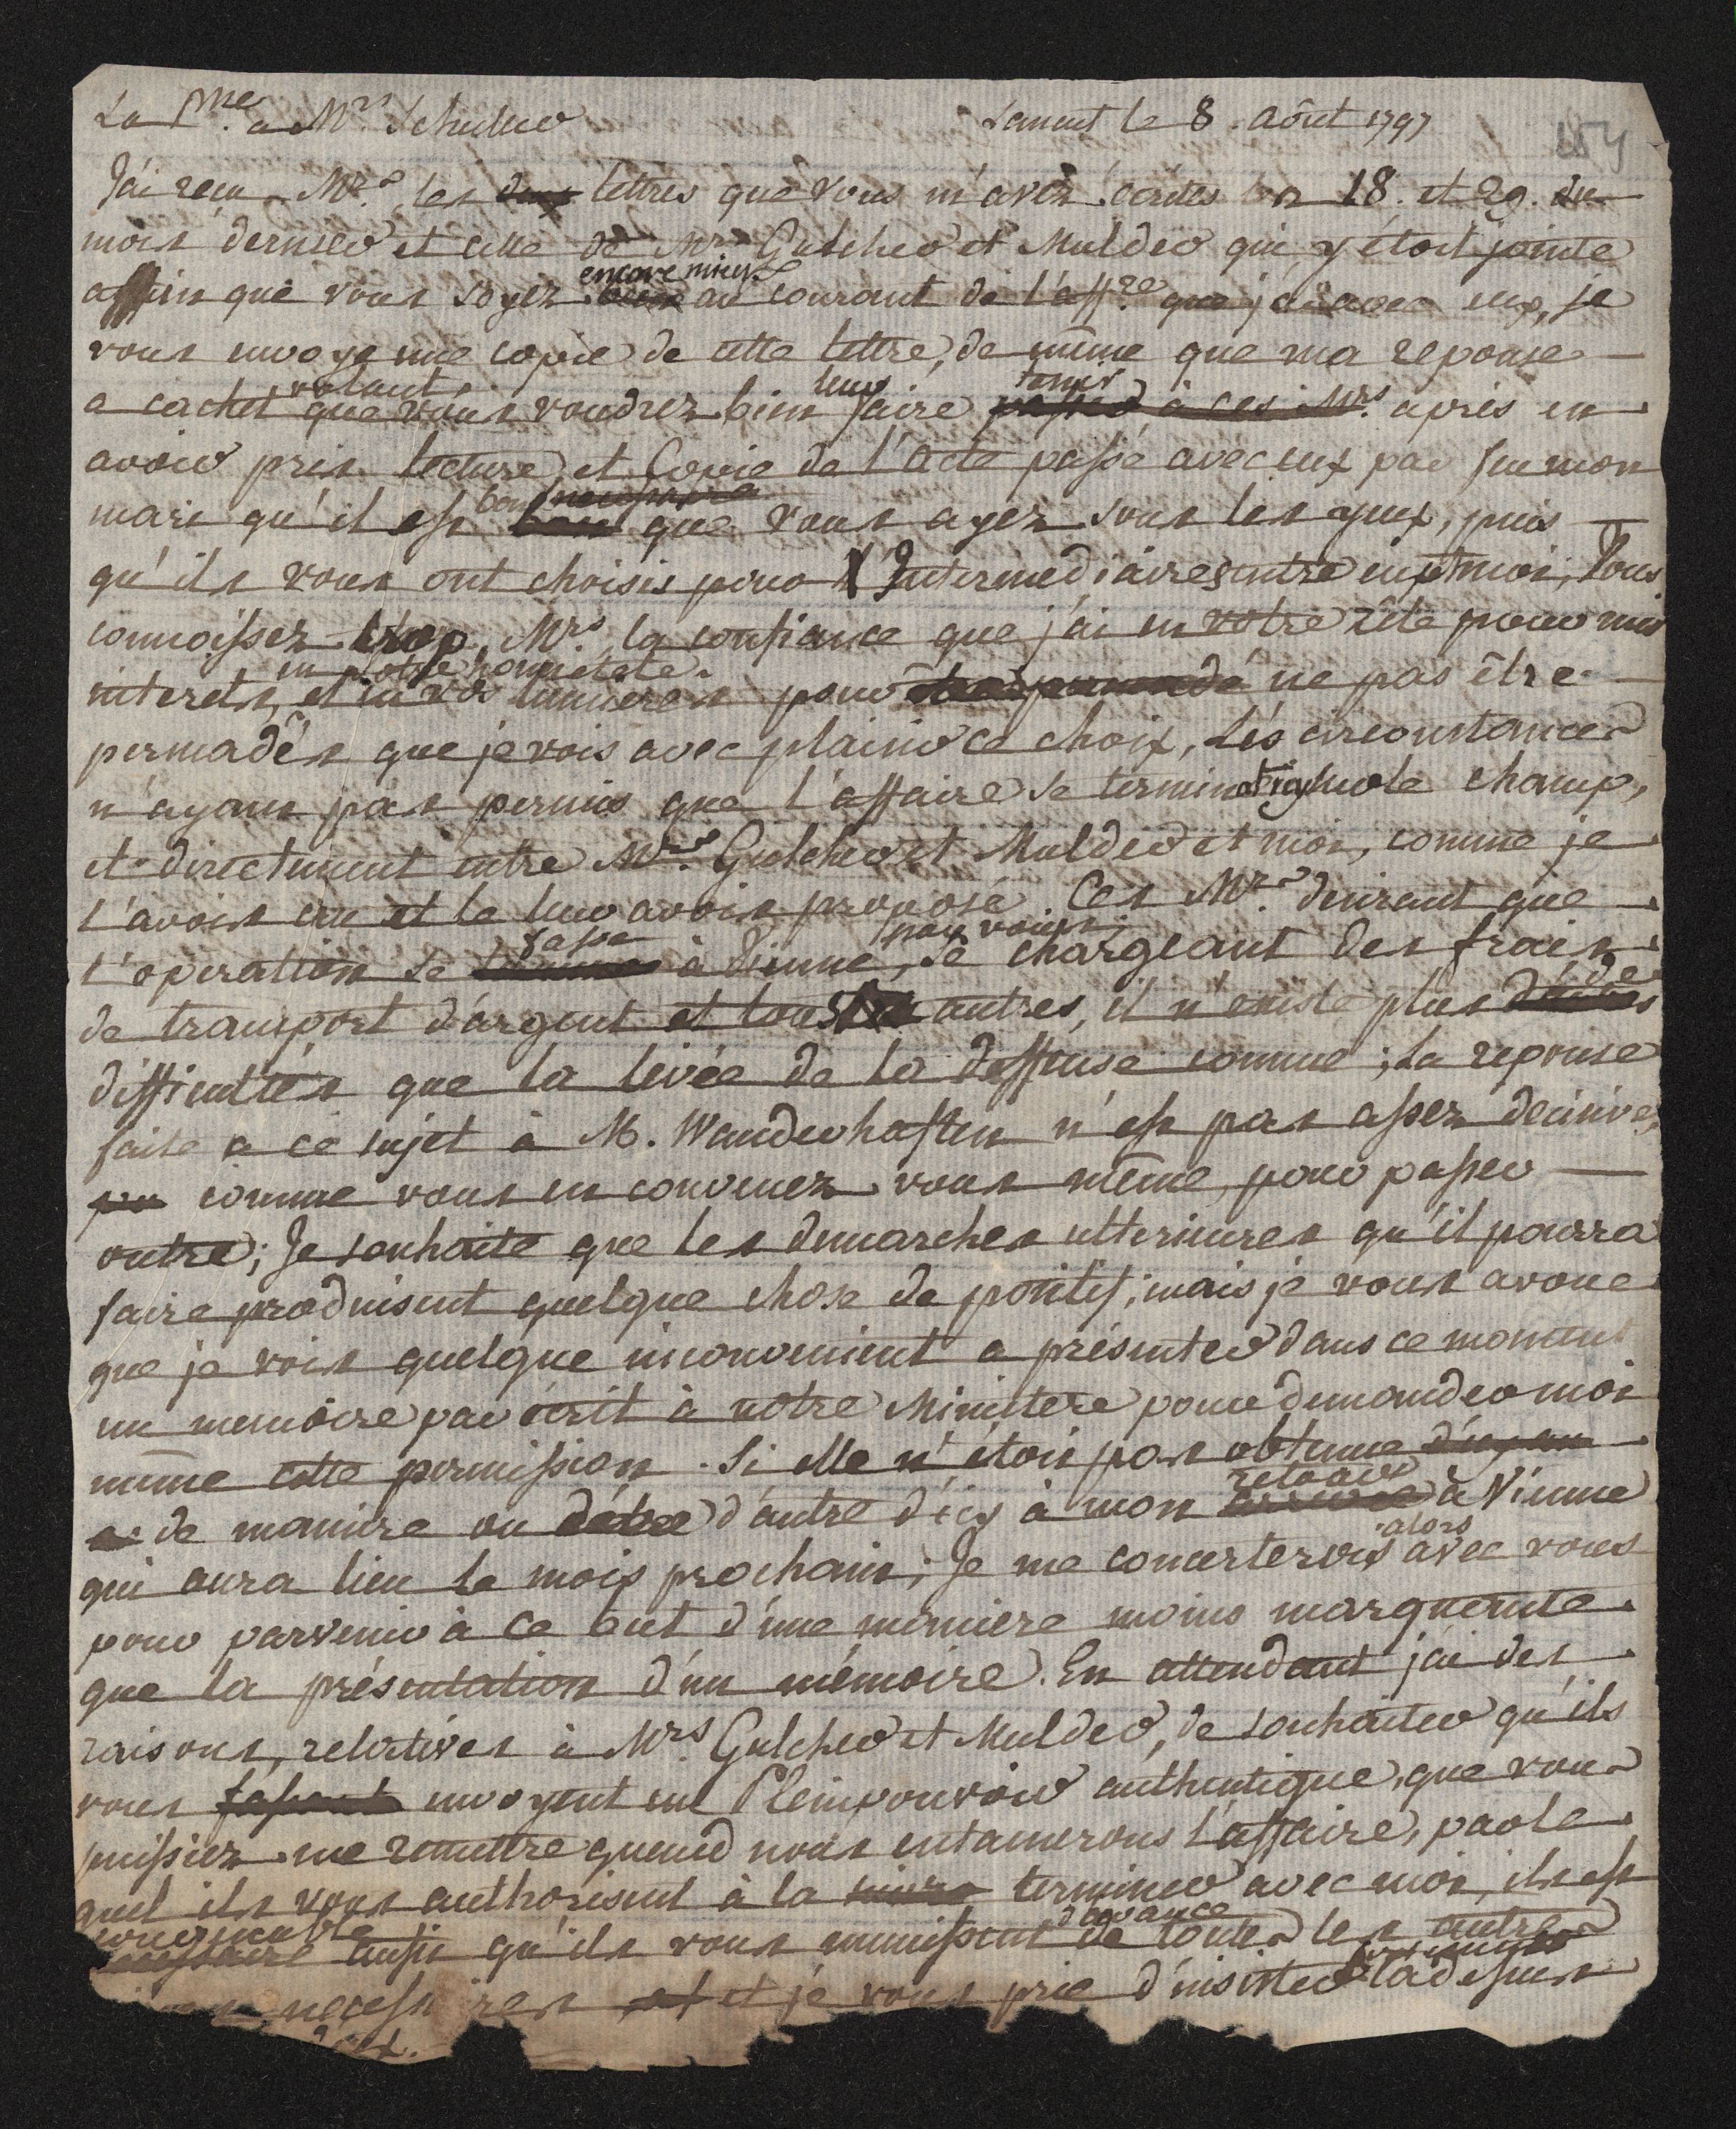 La Pme. a Mrs. Schuller Lancut le 8. Août 1797
J'ai recu Mrs. les deux lettres que vous m'avez écrites les 18. et 29. du
mois dernier et celle de Mrs. Gulcher et Mulder qui y étoit jointe
encore mieux
affin que vous soyez au courant de l'affre. que j'ai avec eux, je
vous envoye une copie de cette lettre, de même que ma reponse
volant leur tenir
a cachet que vous voudrez bien faire passer à ces Mrs. après en
avoir pris lecture, et Copie de l'acte passé avec eux par feu mon
bon necessaire
mari qu'il est bon que vous ayez sous les yeux, puis
qu'ils vous ont choisis pour Intermediaires entre eux et moi, Vous
connoissez trop, Mrs. la confiance que j'ai en votre zêle pour mes
en votre honnêteté
interets, et en vos lumieres pour ne pas être
persuadés que je vois avec plaisir ce choix, Les circonstances
n'ayant pas permis que l'affaire se terminat sur le champ,
et directement entre Mrs. Gulcher et Mulder et moi, comme je
l'avois cru et le leur avois proposé. Ces Mrs. desirant que
fasse par vous
l'operation se termine à Vienne, se chargeant des frais
de transport d'argent et tous les autres, il n'existe plus de
difficultés que la levée de la deffense connue; La reponse
faite a ce sujet à M. Wanderhaften n'est pas assez decisive,
comme vous en convenez vous même, pour passer
outre; Je souhaite que les demarches ulterieures qu'il pourra
faire produisent quelque chose de positif; mais je vous avoue
que je vois quelque inconvenient a présenter dans ce moment
un memoire par écrit à notre Ministere pour demander moi
même cette permission. Si elle n'étoit pas obtenue
retour
de maniere ou d'autre d'icy à mon arrivée à Vienne
alors
qui aura lieu le mois prochain; Je me concerterois avec vous
pour parvenir à ce but d'une maniere moins marquante
que la présentation d'un mémoire. En attendant j'ai des
raisons, relatives à Mrs. Gulcher et Mulder, de souhaiter qu'ils
vous fassent envoyent un Pleinpouvoir authentique, que vous
puissiez me remettre quand nous entamerons l'affaire, par le
quel ils vous authorisent à la terminer avec moi, il est
convenable d'avance
necessaire aussi qu'ils vous munissent de toutes les autres
necessaires et je vous prie d'insister la dessus